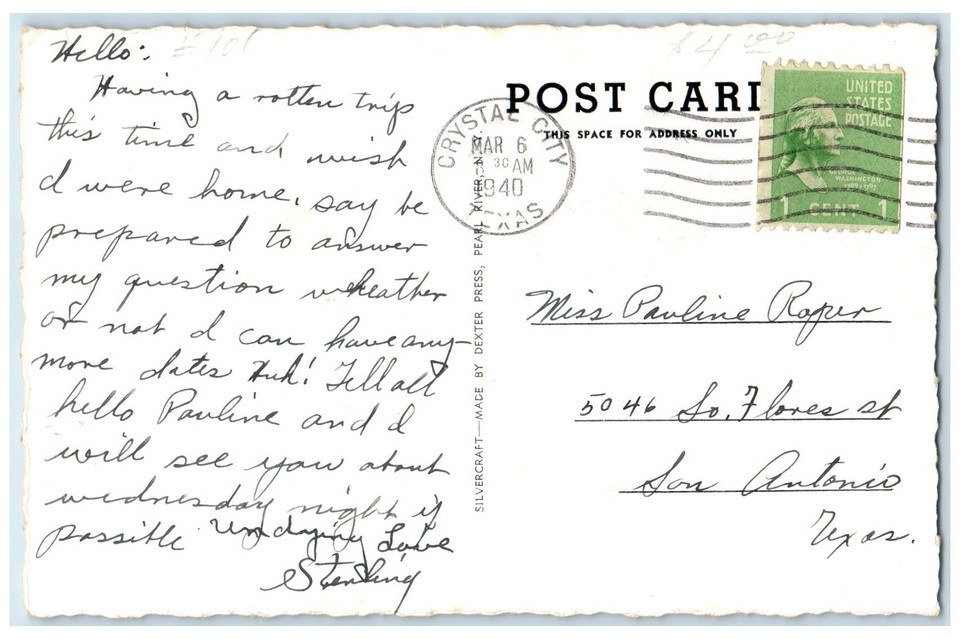 Hello:
Having a rotten trip
this time and wish
I were home. say be
prepared to answer
my question wheather
or not I can have any-
more dates Huh! Tell all
hello Pauline and I
will see you about
wednesday night if
possible Undying Love
Sterling
$4.00
POST CARD
THIS SPACE FOR ADDRESS ONLY
CRYSTAL CITY
MAR 6
30 AM
1940
TEXAS
UNITED
STATES
POSTAGE
GEORGE
WASHINGTON
1789-1797
1 CENT 1
SILVERCRAFT—MADE BY DEXTER PRESS, PEARL RIVER,
Miss Pauline Roper
5046 So. Flores st
San Antonio
Texas.